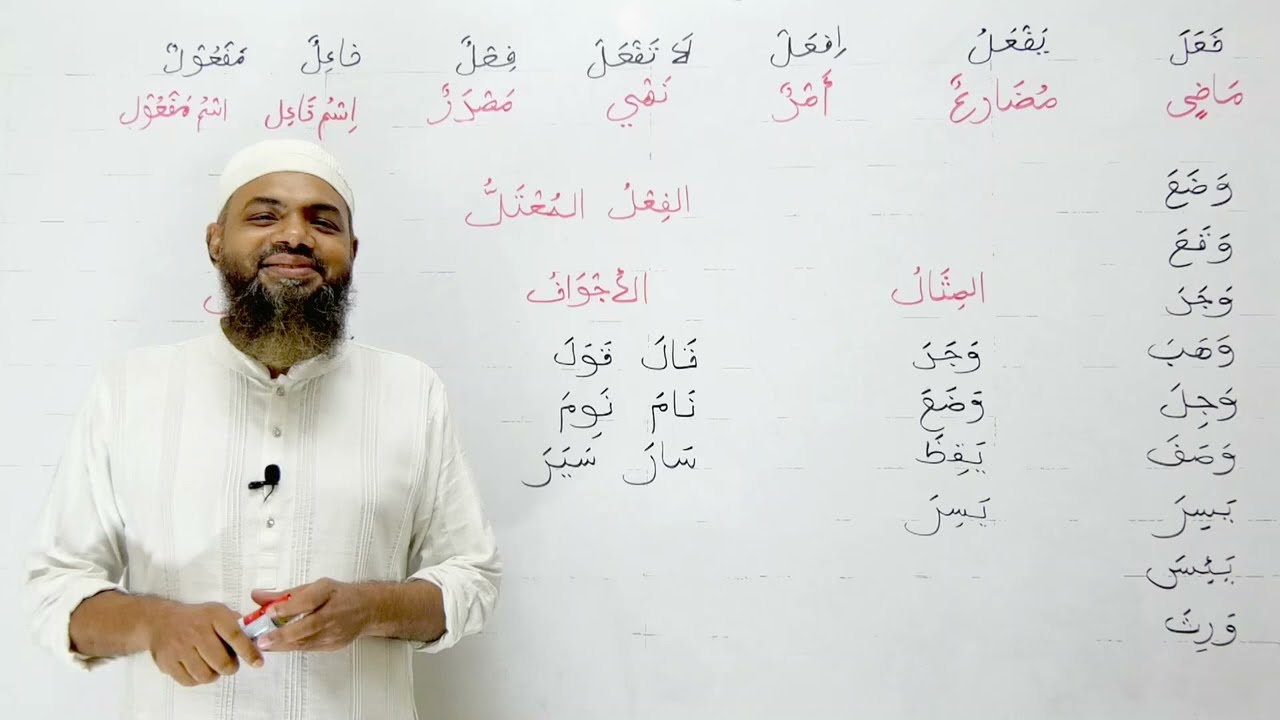 فَعَلَ يَفْعَلُ اِفْعَلْ لَا تَفْعَلْ فِعْلٌ فاعِلٌ مَفْعُوْلٌ
مَاضِي مُضَارِعٌ أَمْرٌ نَهْي مَصْدَرٌ اِسْمُ فَاعِل اسْمُ مَفْعُوْل
وَضَعَ
وَقَعَ
وَجَدَ
وَهَبَ
وَجِلَ
وَصَفَ
يَسِرَ
يَئِسَ
وَرِثَ
الفِعْلُ المُعْتَلُّ
المِثَالُ
وَجَدَ
وَضَعَ
يَقِظَ
يَسِرَ
الأَجْوَافُ
قَالَ قَوَلَ
نَامَ نَوِمَ
سَارَ سَيَرَ